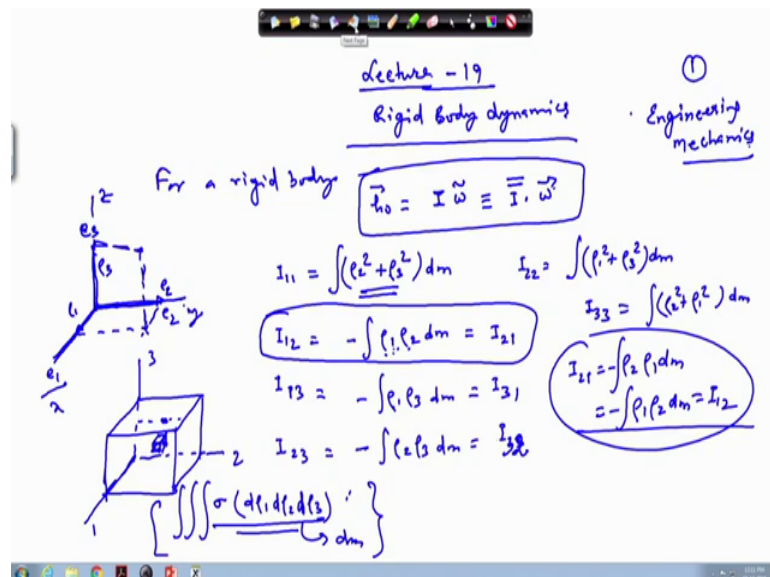 Next Page
Lecture - 19
①
Rigid Body dynamics
Engineering
mechanics
For a rigid body
h⃗₀ = I ω̃ ≡ I̿ . ω⃗
z
e₃
ρ₃
e₂
ρ₂ y
ρ₁
e₁
x
I₁₁ = ∫(ρ₂² + ρ₃²) dm
I₂₂ = ∫(ρ₁² + ρ₃²) dm
I₃₃ = ∫(ρ₂² + ρ₁²) dm
I₁₂ = - ∫ρ₁ρ₂ dm = I₂₁
I₂₁ = -∫ρ₂ρ₁ dm
= -∫ρ₁ρ₂ dm = I₁₂
I₁₃ = - ∫ρ₁ρ₃ dm = I₃₁
I₂₃ = - ∫ρ₂ρ₃ dm = I₃₂
3
2
1
{ ∫∫∫ σ (dρ₁dρ₂dρ₃) }
→ dm